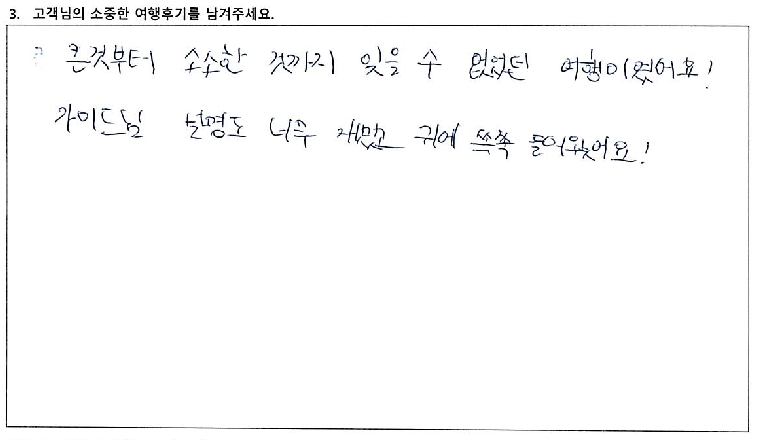 3. 고객님의 소중한 여행후기를 남겨주세요.
큰것부터 소소한 것까지 잊을 수 없었던 여행이였어요!
가이드님 설명도 너무 재밌고 귀에 쏙쏙 들어왔어요!